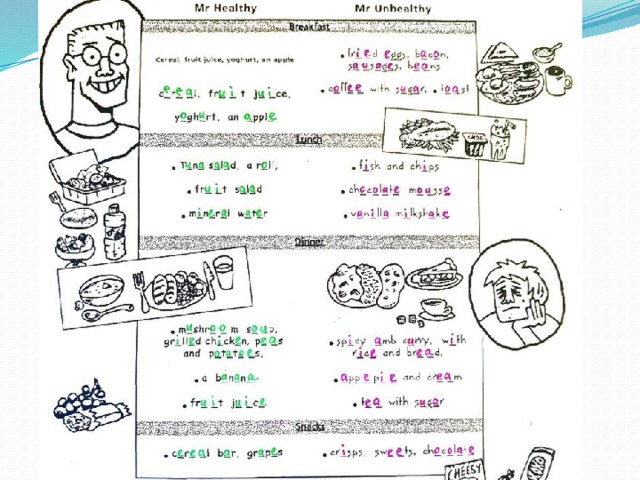 Mr Healthy
Mr Unhealthy
Breakfast
Cereal, fruit juice, yoghurt, an apple
cereal, fruit juice,
yoghurt, an apple
• fried eggs, bacon,
sausages, beans
• coffee with sugar, • toast
Lunch
• Tuna salad, a roll,
• fruit salad
• mineral water
• fish and chips
• chocolate mousse
• vanilla milkshake
Dinner
• mushroom soup,
grilled chicken, peas
and potatoes,
• a banana
• fruit juice
• spicy amb curry, with
rice and bread,
• app e pie and cream
• tea with sugar
Snacks
• cereal bar, grapes
• crisps, sweets, chocolate
CHEESY